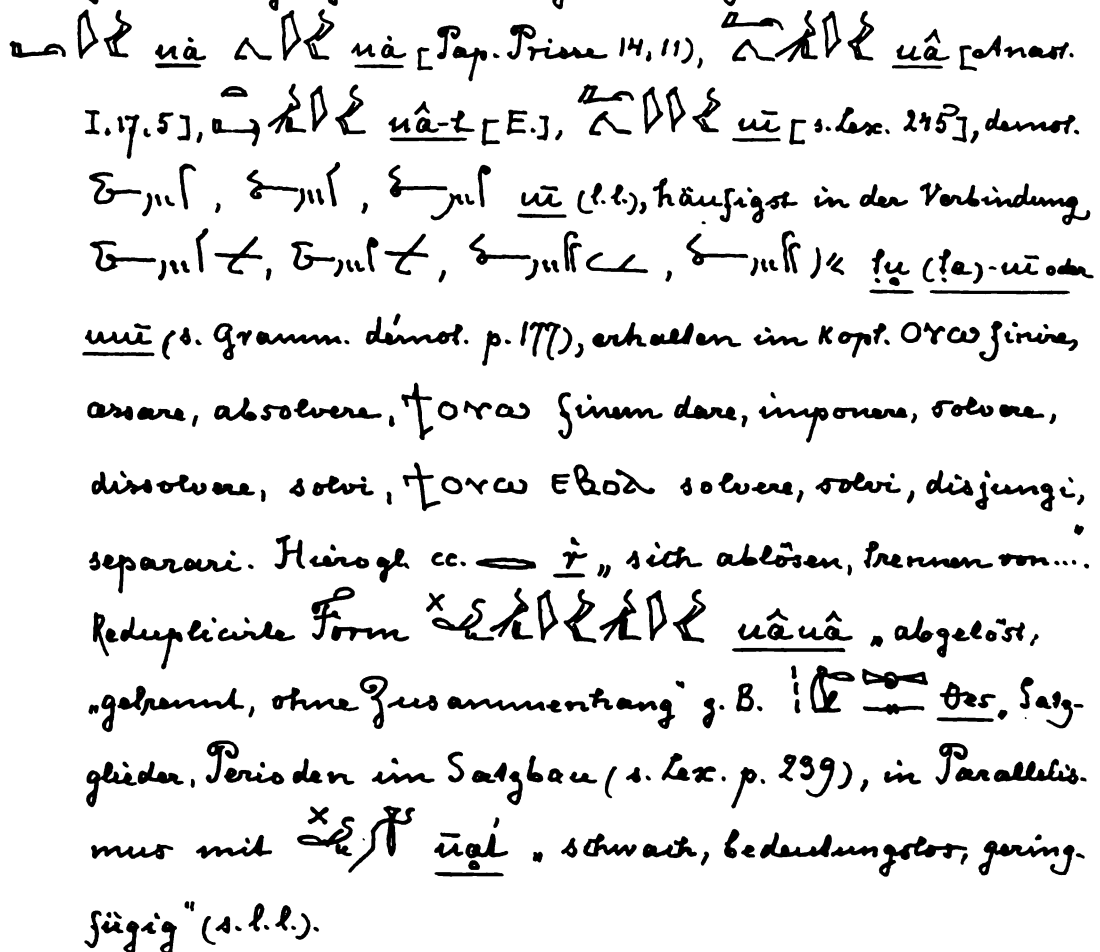 uȧ uȧ [Pap. Prisse 14, 11), uâ [Anast.
I, 17, 5], uâ-t [E.], uī [s. Lex. 245], demot.
uī (l.l.), häufigst in der Verbindung
(ṭa)-uī oder
(s. Gramm. démot. p. 177), erhalten im Kopt. ⲟⲩⲱ finire,
cessare, absolvere, ϯⲟⲩⲱ finem dare, imponere, solvere,
dissolvere, solvi, ϯⲟⲩⲱ ⲉⲃⲟⲗ solvere, solvi, disjungi,
separari. Hierogl. cc. ṙ „sich ablösen, trennen von....“
Reduplicirte Form uâuâ „abgelöst,
„getrennt, ohne Zusammenhang“ z. B. θes „Satz-
glieder, Perioden im Satzbau (s. Lex. p. 239), in Parallelis-
mus mit „schwach, bedeutungslos, gering-
fügig“ (s. l. l.).